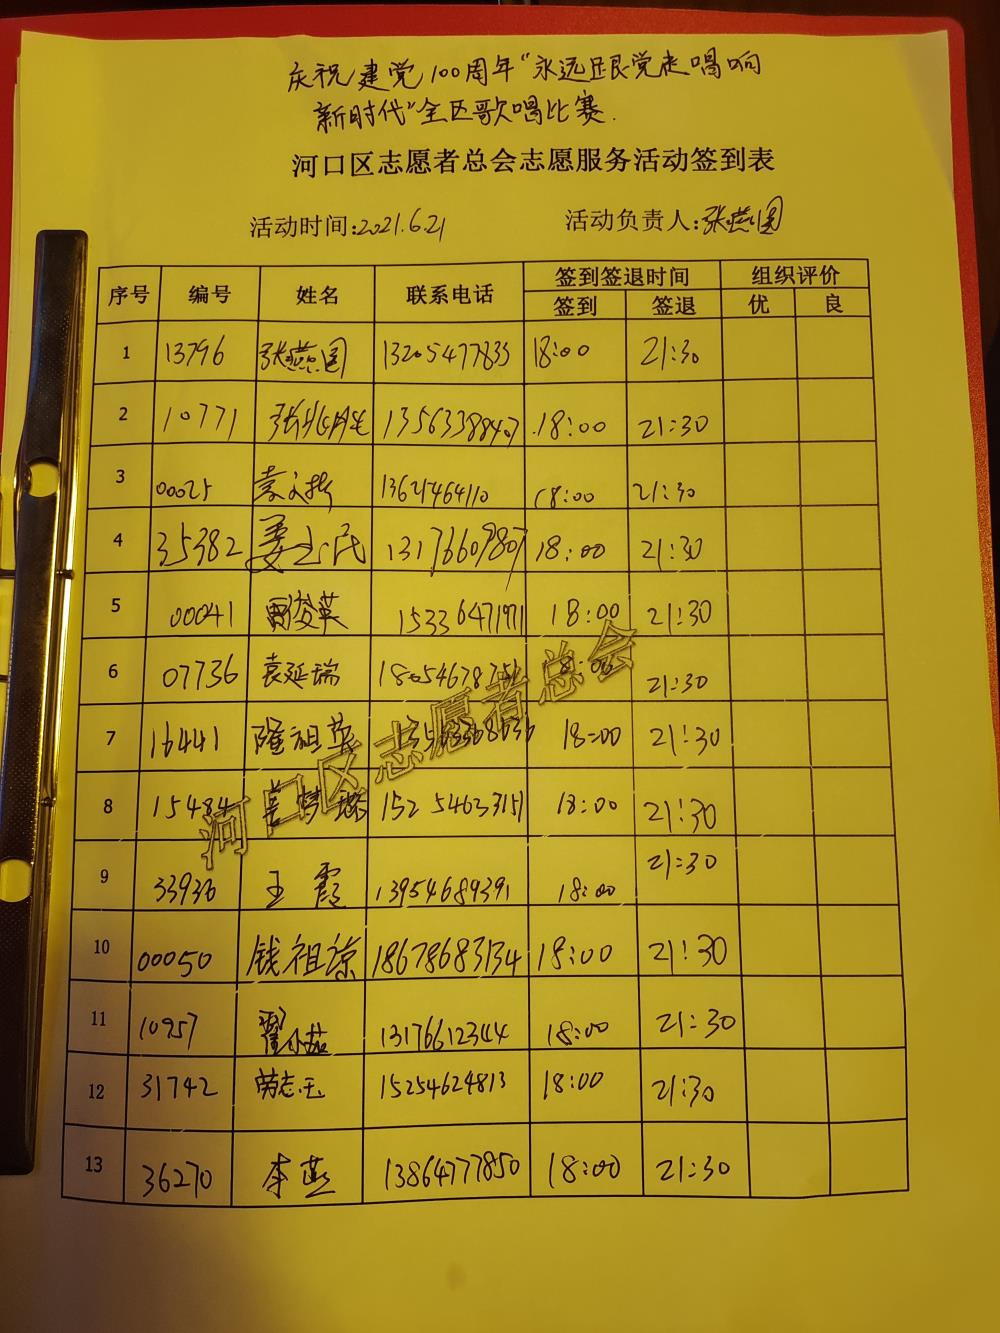 庆祝建党100周年"永远跟党走唱响
新时代"全区歌唱比赛.
河口区志愿者总会志愿服务活动签到表
活动时间:2021.6.21 活动负责人:张燕国
序号 编号 姓名 联系电话 签到签退时间 组织评价
签到 签退 优 良
1 13796 张燕国 13205477833 18:00 21:30
2 10771 13563388407 18:00 21:30
3 00025 13621464110 18:00 21:30
4 35382 姜玉民 13176609807 18:00 21:30
5 00041 15336471971 18:00 21:30
6 07736 袁延瑞 18054678751 18:00 21:30
7 16441 隆祖英 18:00 21:30
8 15484 15254633151 18:00 21:30
9 33936 王霞 13954689391 18:00 21:30
10 00050 钱祖琼 18678683134 18:00 21:30
11 10957 13176612344 18:00 21:30
12 31742 劳志玉 15254624813 18:00 21:30
13 36270 李燕 13864777850 18:00 21:30
河口区志愿者总会